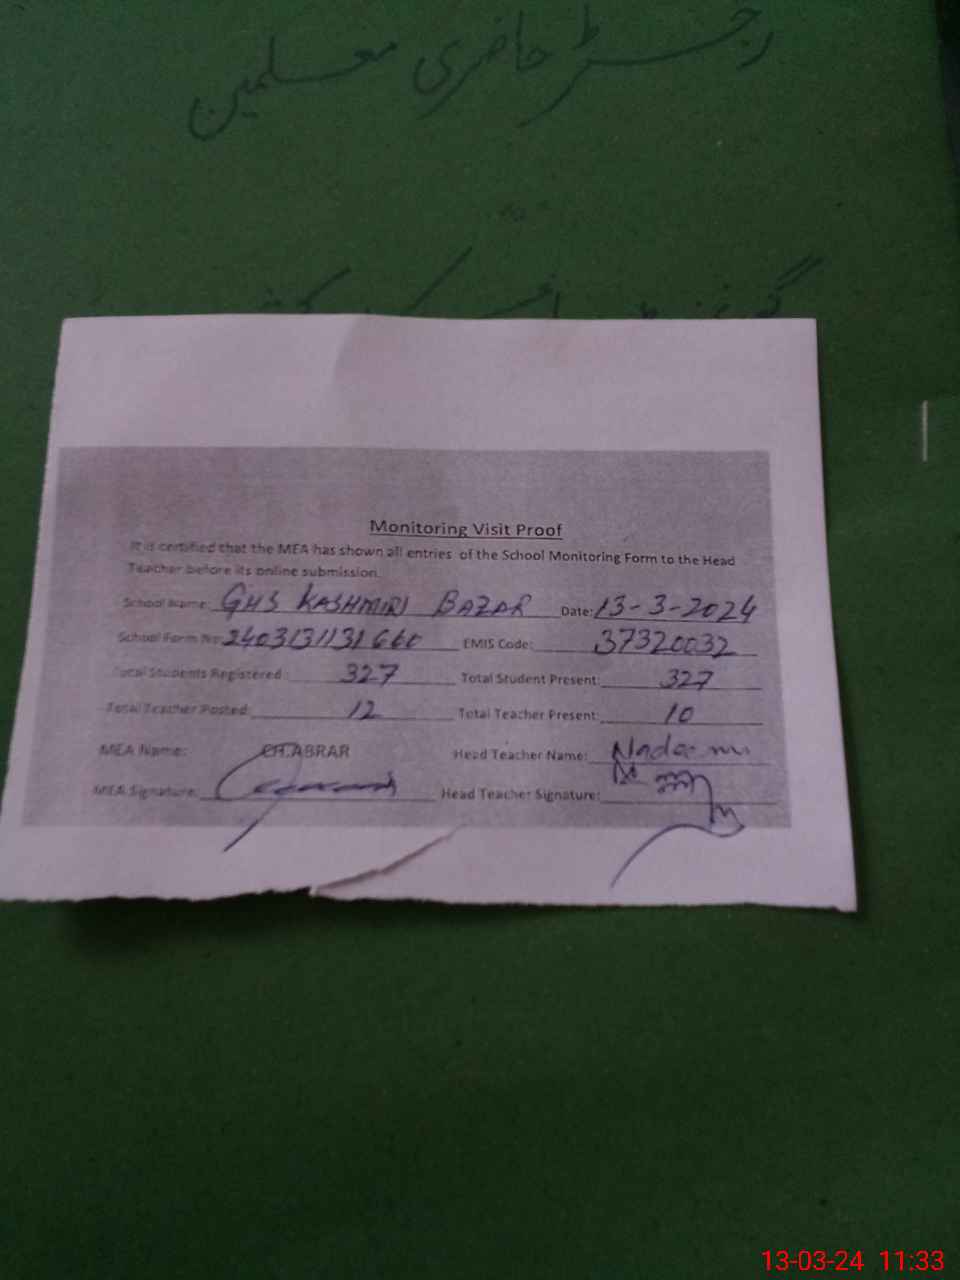 رجسٹر حاضری معلمین
Monitoring Visit Proof
It is certified that the MEA has shown all entries of the School Monitoring Form to the Head
Teacher before its online submission.
School Name: GHS KASHMIRI BAZAR Date: 13-3-2024
School Form No: 2403131131660 EMIS Code: 37320032
Total Students Registered : 327 Total Student Present: 327
Total Teacher Posted: 12 Total Teacher Present: 10
MEA Name: CH.ABRAR Head Teacher Name: Nadeem
MEA Signature: Head Teacher Signature:
13-03-24 11:33